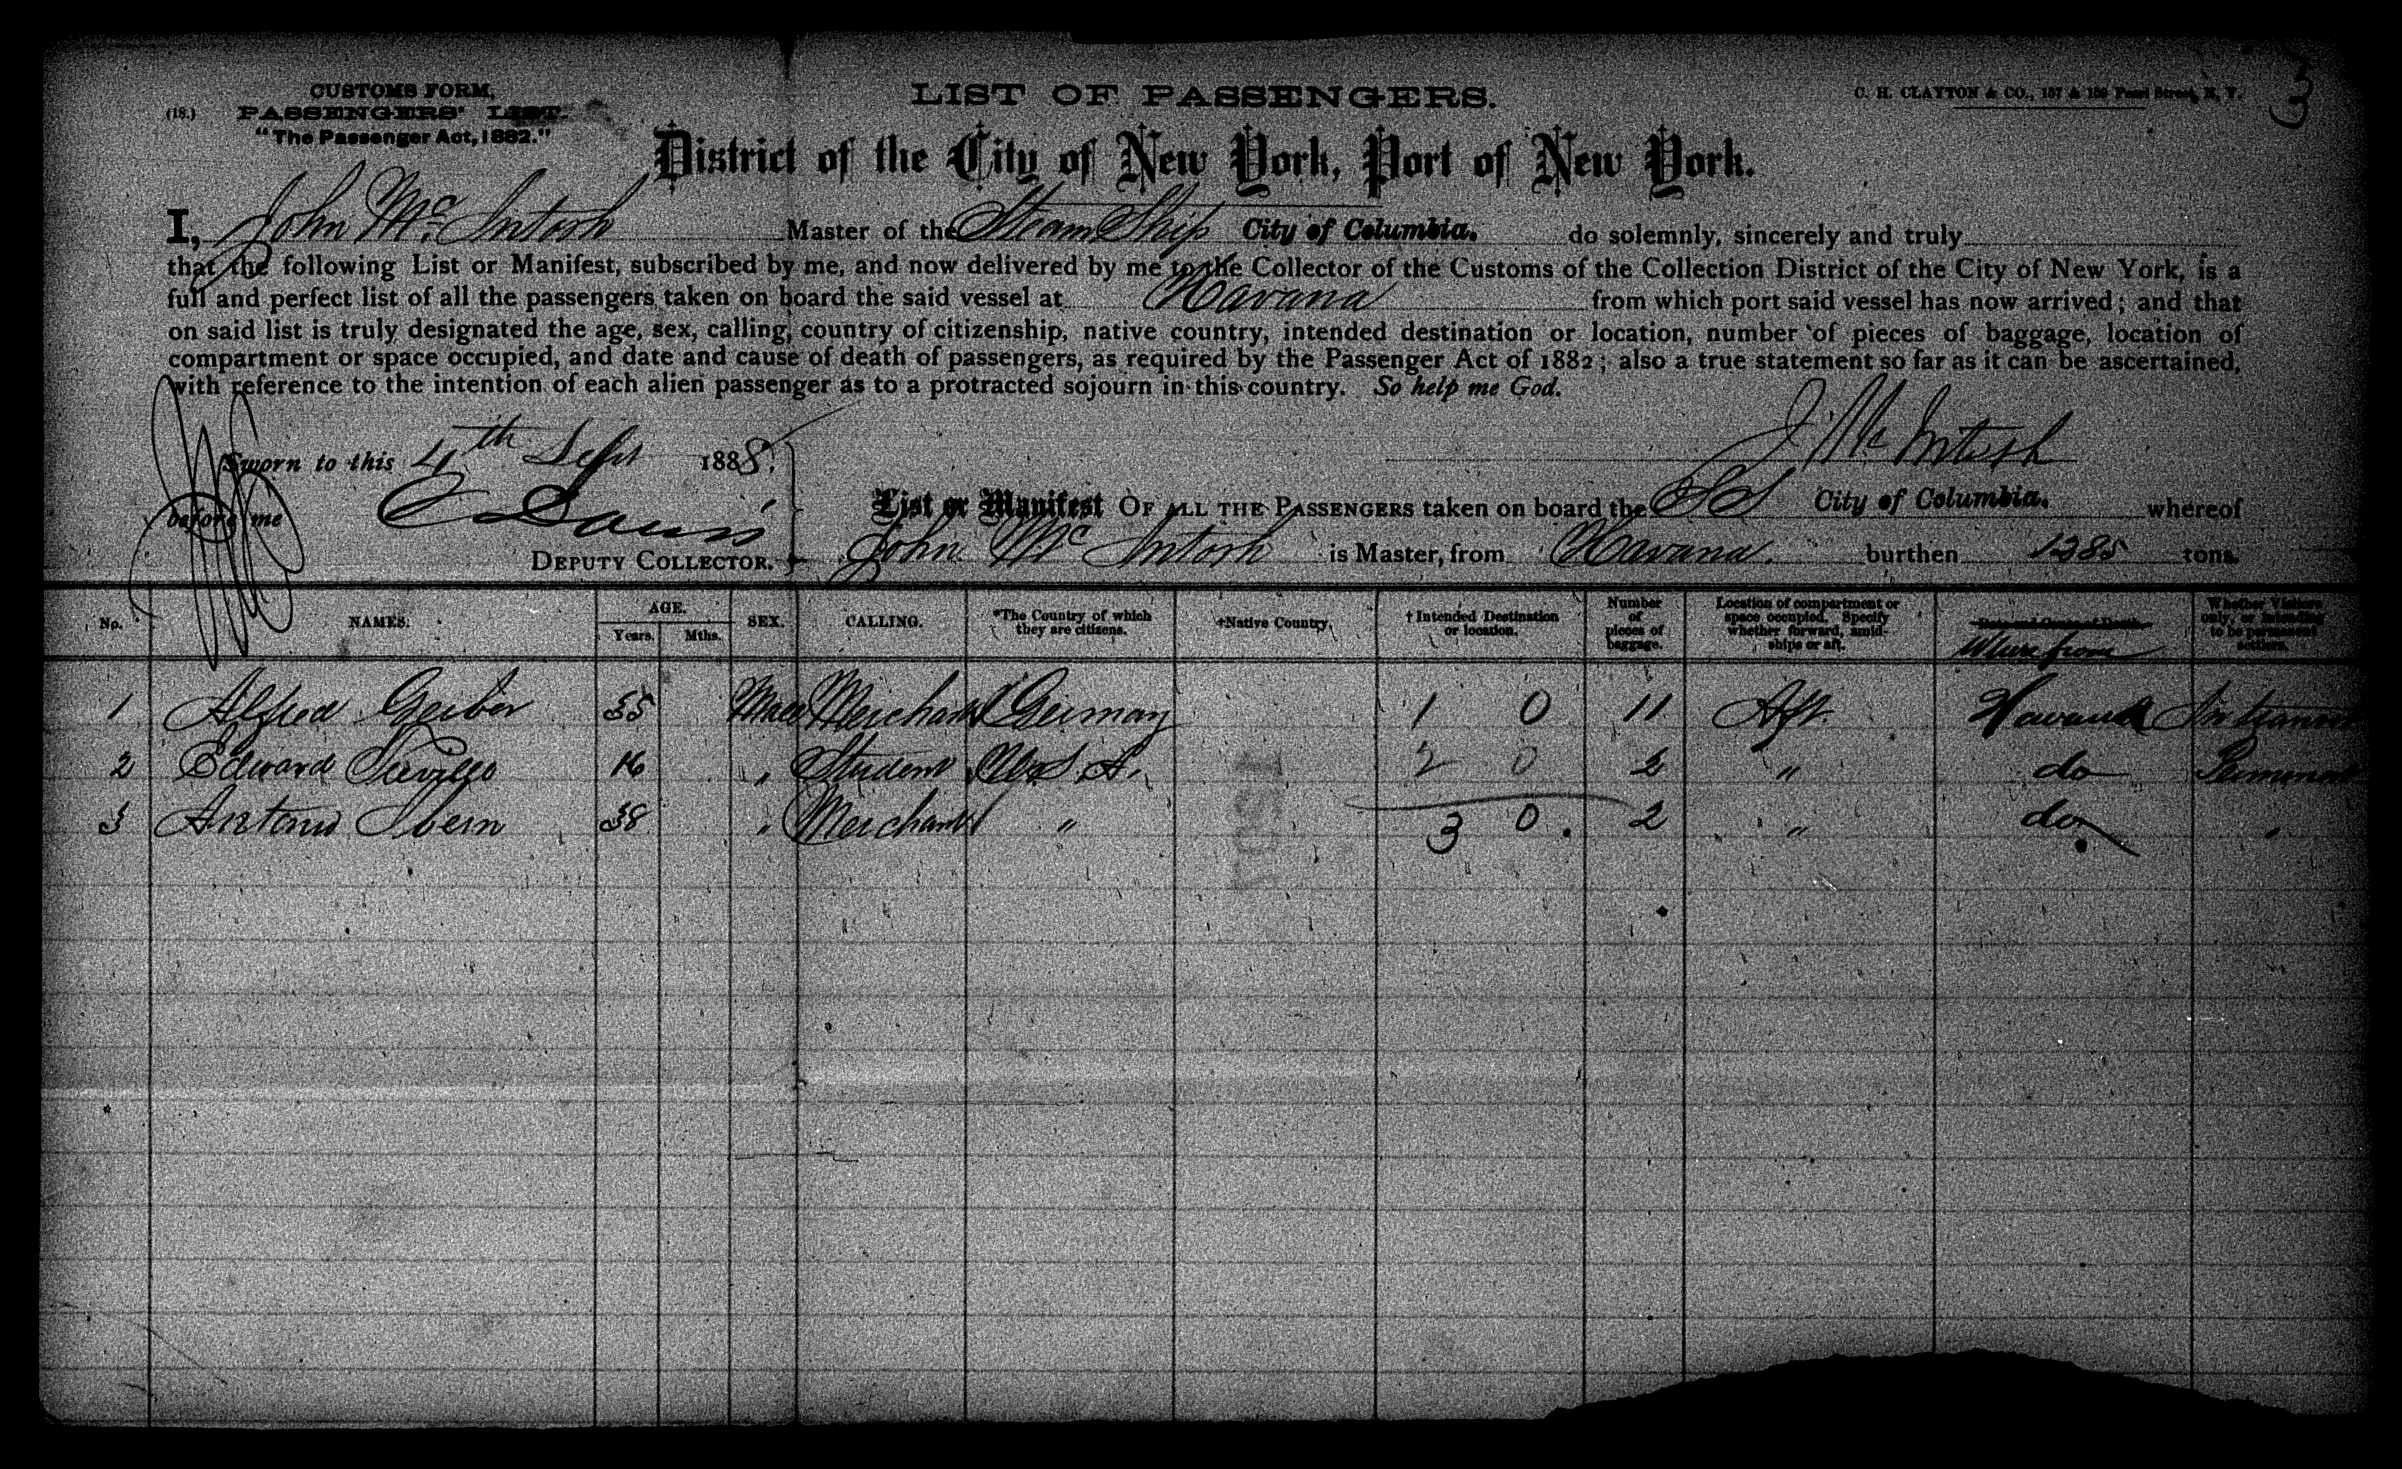 3
CUSTOMS FORM,
(18.) PASSENGERS' LIST.
"The Passenger Act, 1882."
LIST OF PASSENGERS.
C. H. CLAYTON & CO., 157 & 159 Pearl Street, N. Y.
District of the City of New York, Port of New York.
I, John Mc Intosh Master of the Steam Ship City of Columbia. do solemnly, sincerely and truly
that the following List or Manifest, subscribed by me, and now delivered by me to the Collector of the Customs of the Collection District of the City of New York, is a
full and perfect list of all the passengers taken on board the said vessel at Havana from which port said vessel has now arrived; and that
on said list is truly designated the age, sex, calling, country of citizenship, native country, intended destination or location, number of pieces of baggage, location of
compartment or space occupied, and date and cause of death of passengers, as required by the Passenger Act of 1882; also a true statement so far as it can be ascertained,
with reference to the intention of each alien passenger as to a protracted sojourn in this country. So help me God.
Sworn to this 4th Sept 1888.
J. Mc Intosh
before me
DEPUTY COLLECTOR.
List or Manifest OF ALL THE PASSENGERS taken on board the SS City of Columbia. whereof
John Mc Intosh is Master, from Havana. burthen 1285 tons.
No. NAMES. AGE. Years. Mths. SEX. CALLING. *The Country of which they are citizens. †Native Country. †Intended Destination or location. Number of pieces of baggage. Location of compartment or space occupied. Specify whether forward, amidships or aft. Date and Cause of Death. Where from Whether Visitors only, or intending to be permanent settlers.
1 Alfred Gerber 35 Male Merchant Germany 1 0 11 Aft. Havana In transit
2 Edward 16 " Student U.S.A. 2 0 2 " do
3 Antonio 38 " Merchant " 3 0. 2 " do "